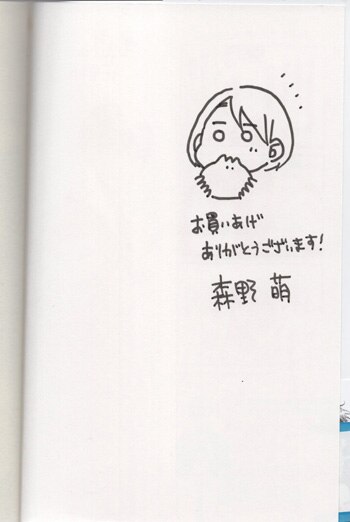 お買いあげ
ありがとうございます!
森野 萌